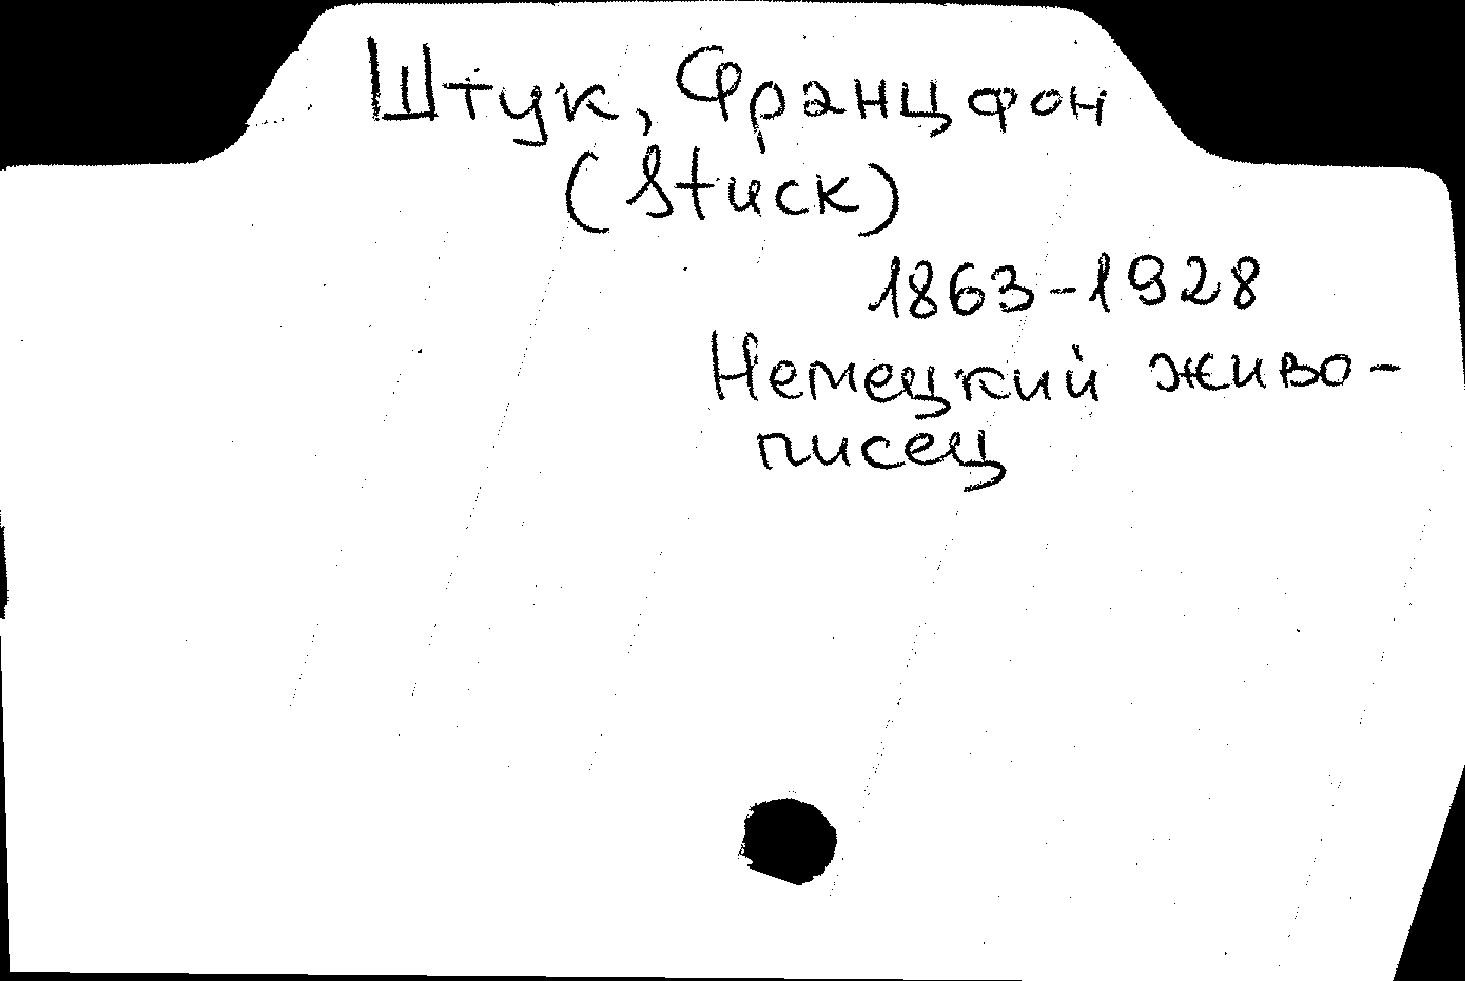 Штук, Франц фон
(Stuck)
1863-1928
Немецкий живо-
писец